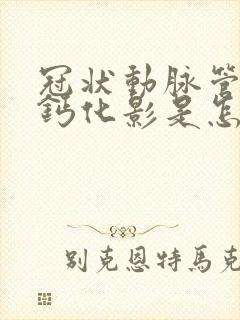 冠狀動脈管
鈣化影是怎
别克恩特馬克